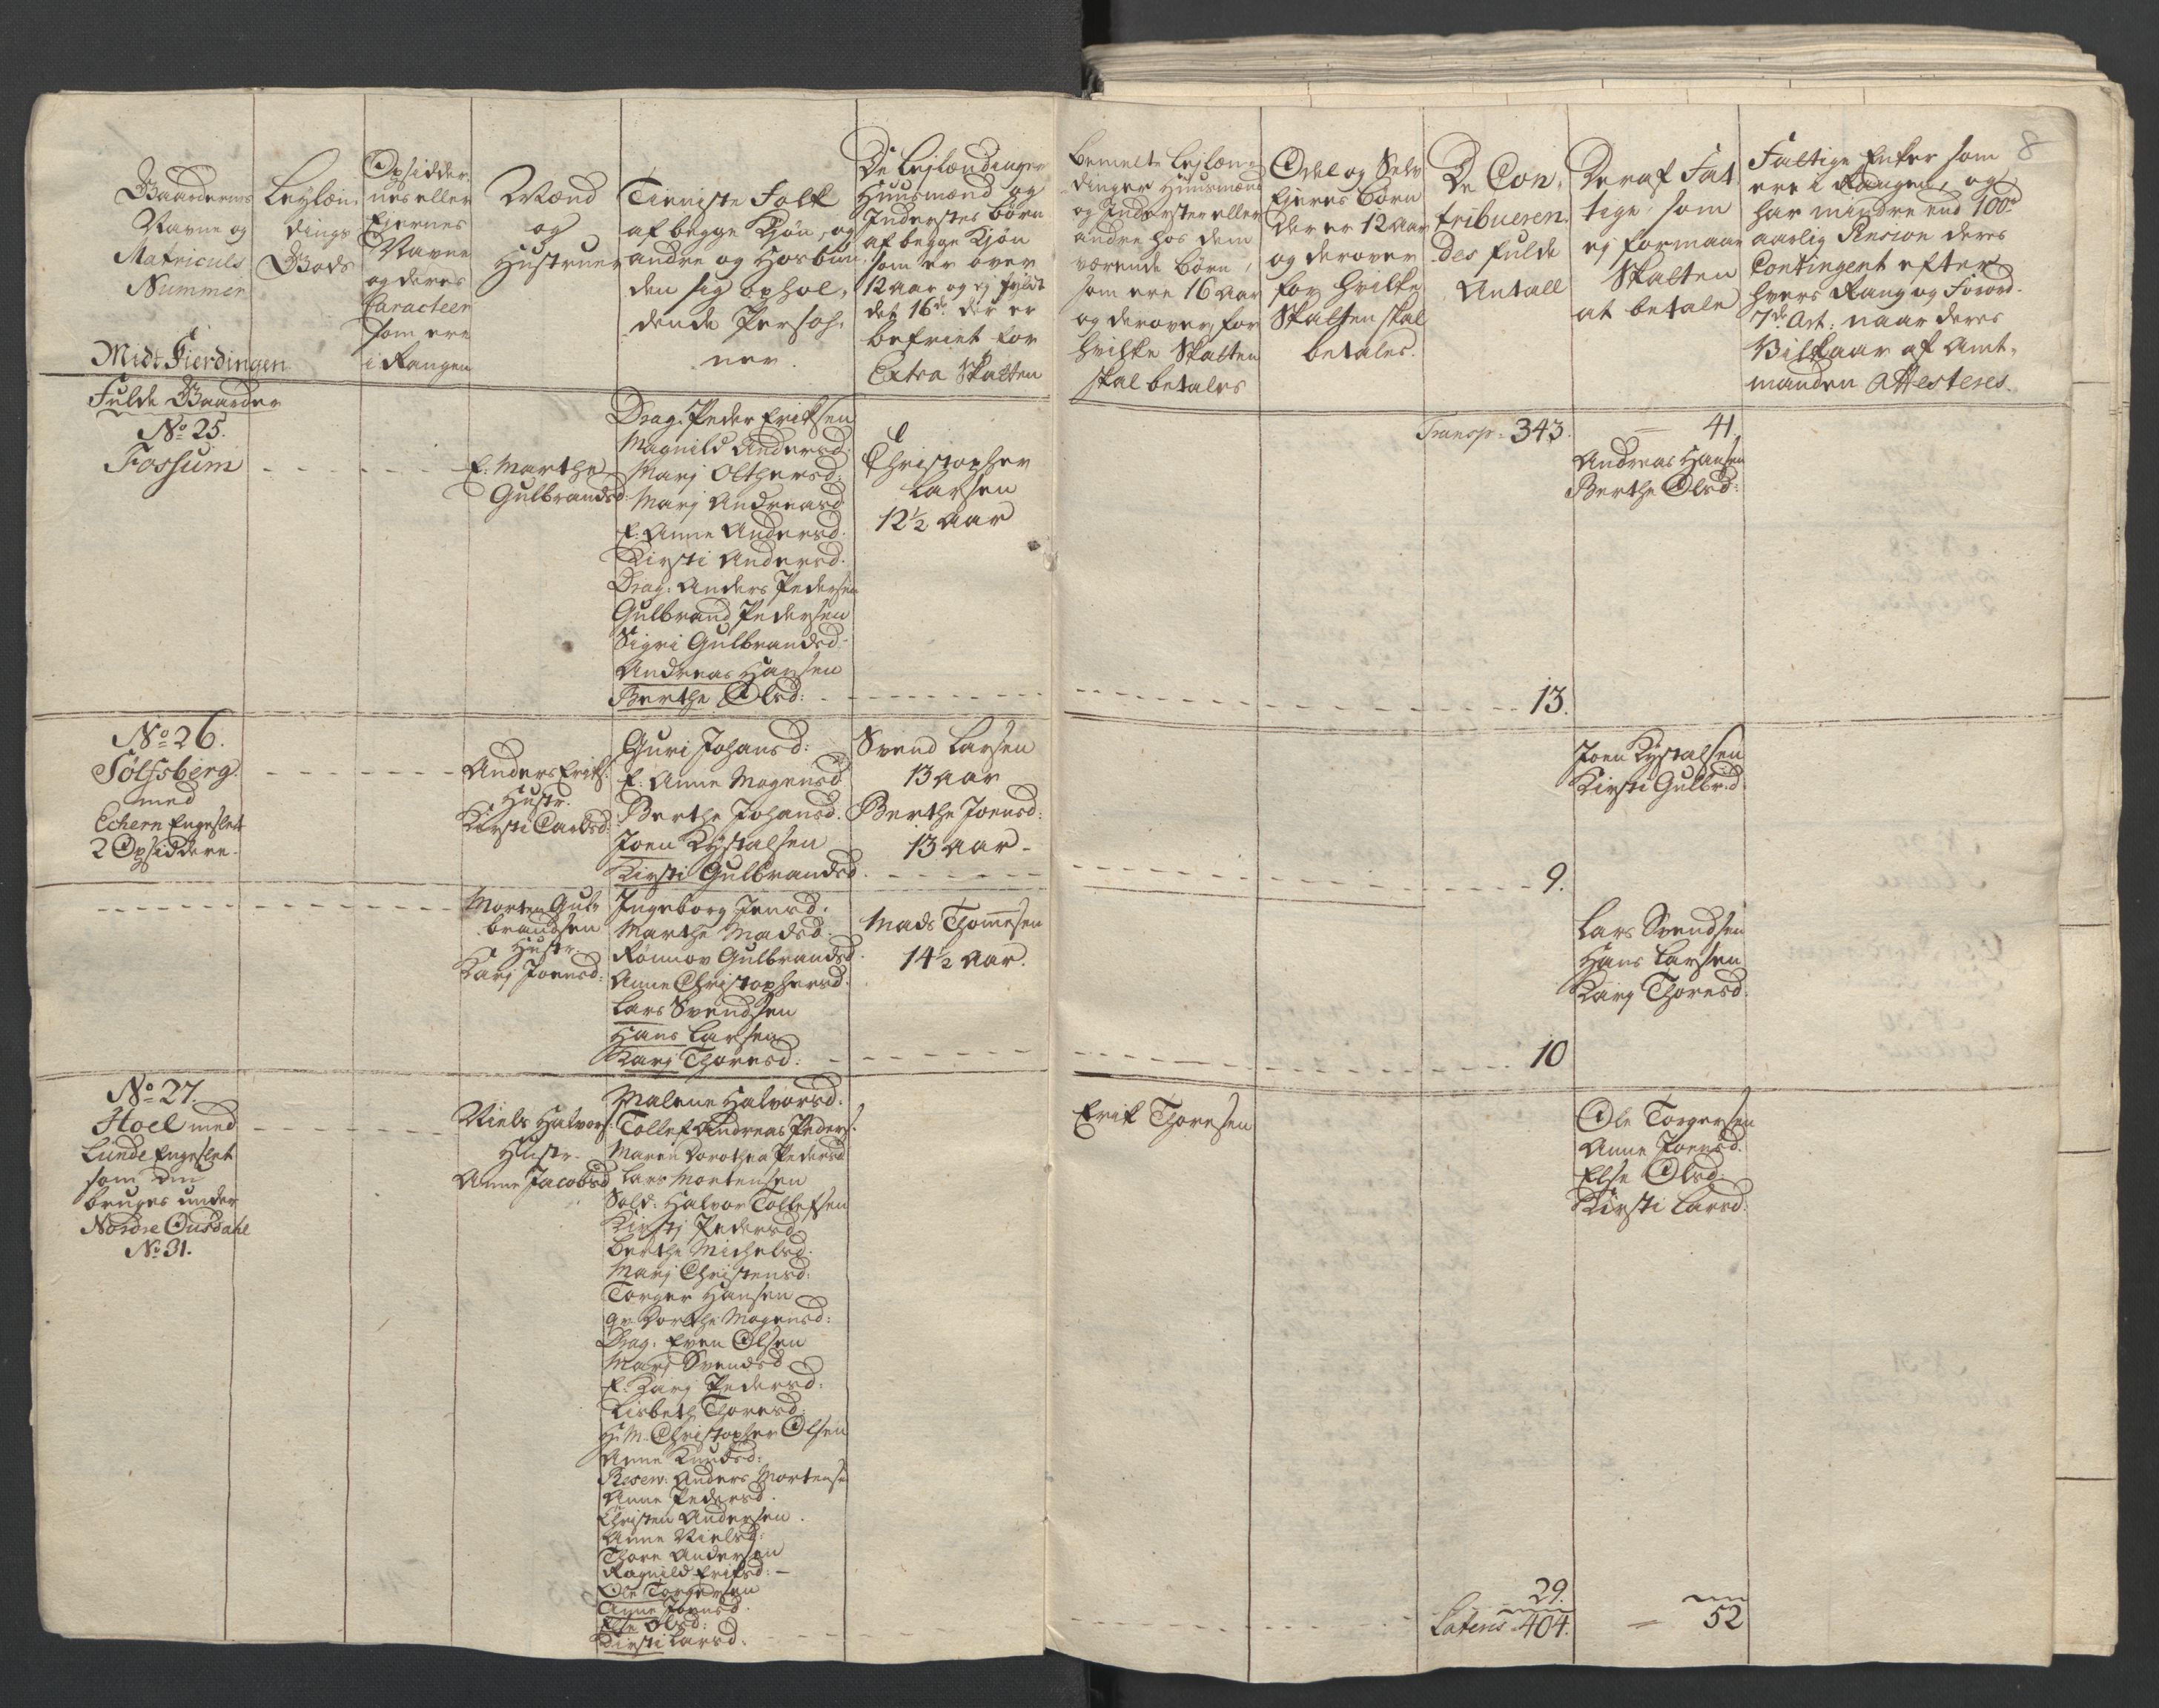 8
Gaardernes
Navne og
Matriculs
Nummer
Midt Fierdingen
Leylæn-
dings
Gods
Opsidder-
nes eller
Ejernes
Navne
og deres
Caracteer
som ere
i Rangen
Mænd
og
Hustruer
Tieniste Folk
af begge Kjøn, og
andre og Hosbun-
den sig ophol-
dende Perso-
ner.
De Lejlændinger
Huusmænd og
Inderstes børn
af begge Kjøn
som er over
12 aar og ej fyldt
det 16de der er
befriet for
Extra Skatten
bemelte Lejlæn-
dinger Huusmænd
og Inderster eller
andre hos dem
værende børn,
som ere 16 aar
og derover, for
hvilke Skatten
skal betales
Odel og Selv
Ejeres børn
der er 12 aar
og derover
for hvilke
Skatten skal
betales.
De Con-
tribueren-
des fulde
Antall
Deraf Fat-
tige, som
ej formaar
Skatten
at betale
Fattige Enker som
ere i Rangen, og
har mindre end 100rd
aarlig Pension deres
Contingent efter
hvers Rang og Forord:
7de Art: naar deres
Vilkaar af Amt-
manden Attesteres.
Fulde Gaarder
No 25.
Fossum
E. Marthe
Gulbrandsd:
Drag: Peder Eriksen
Magnild Andersd:
Marj Olthersd:
Marj Andreasd
E. Anne Andersd.
Kirsti Andersd.
Drag: Anders Pedersen
Gulbrand Pedersen
Sigri Gulbrandsd:
Andreas Hansen
Berthe Olsd:
Christopher
Larsen
12 1/2 aar
Transp: 343.
41.
Andreas Hansen
Berthe Olsd:
13.
No 26.
Sølfsberg
med
Echern Engeslet
2 Opsiddere.
Anders Eriks:
Hustr.
Kirsti Carlsd:
Guri Johansd:
E. Anne Mogensd
Berthe Johansd.
Joen Kystalsen
Kirsti Gulbrandsd.
Svend Larsen
13 aar
Berthe Joensd:
13 aar
Joen Kystalsen
Kirsti Gulbr:d
9.
Morten Gul-
brandsen
Hustr.
Karj Joensd:
Ingeborg Jensd.
Marthe Madsd.
Rønnov Gulbrandsd.
Anne Christophersd.
Lars Svendsen
Hans Larsen
Karj Thoresd:
Mads Thomesen
14 1/2 aar.
Lars Svendsen
Hans Larsen
Karj Thoresd:
10
No 27.
Hoel med
Lunde Engeslet
som din
bruges under
Nordre Ousdahl
No 31.
Niels Halvors:
Hustr.
Anne Jacobsd
Malene Halvorsd.
Tollef Andreas Peders:
Maren Dorothea Pedersd
Lars Mortensen
Sold: Halvor Tollefsen
Kirstj Pedersd
Berthe Michelsd.
Marj Christensd:
Torger Hansen
qv. Dorthe Mogensd:
Drag: Even Olsen
Marj Svendsd
E: Karj Pedersd:
Lisbeth Thoresd:
H:M. Christopher Olsen
Anne Knudsd:
Reserv: Anders Mortensen
Anne Pedersd.
Christen Andersen.
Anne Nielsd:
Thore Andersen
Ragnild Eriksd:
Ole Torgersen
Anne Joensd.
Else Olsd:
Kirsti Larsd:
Erik Thoresen
Ole Torgersen
Anne Joensd.
Else Olsd
Kirsti Larsd.
29.
Lateris 404.
52